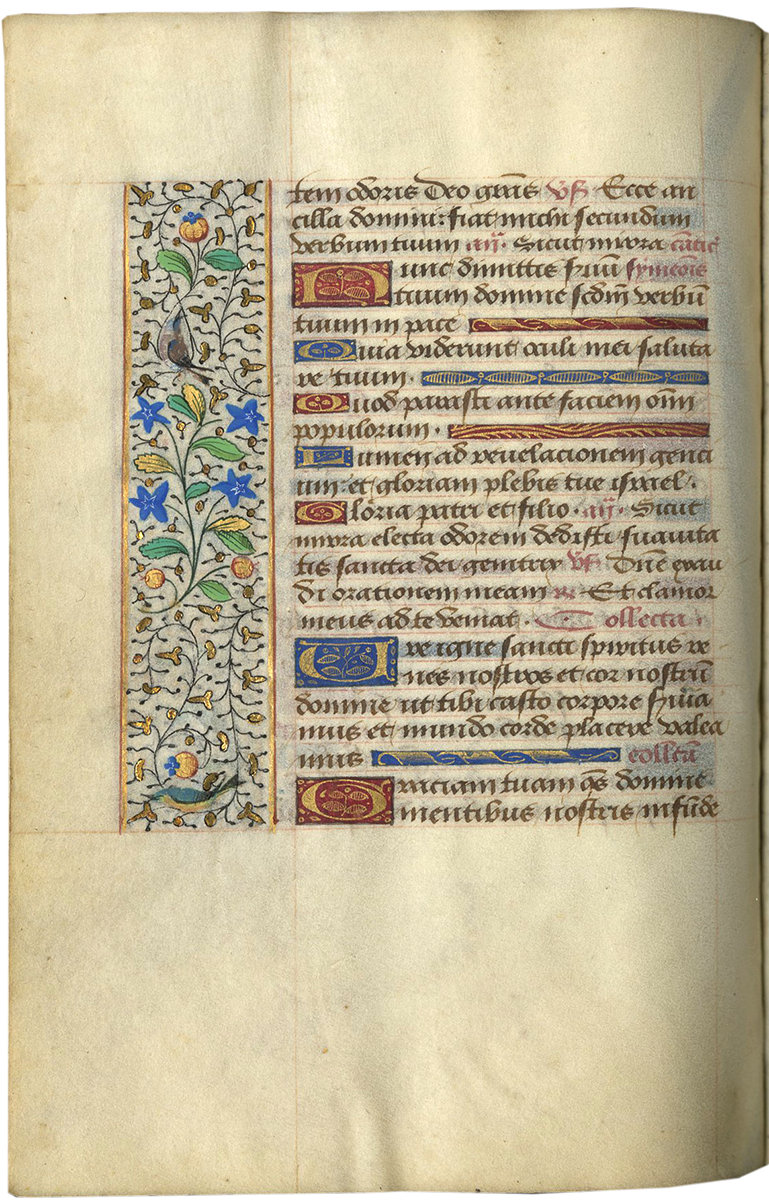 tem odoris Deo grās v̄s Ecce an
cilla domini: fiat michi secundum
verbum tuum añ. Sicut mirra cātic̄
Nunc dimittis s̄ruū symeōis
tuum domine scdm̄ verbū
tuum in pace
Quia viderunt oculi mei saluta
re tuum.
Quod parasti ante faciem oīm
populorum.
Lumen ad revelacionem genci
um: et gloriam plebis tue israel.
Gloria patri et filio. añ. Sicut
mirra electa odorem dedisti suavita
tis sancta dei genitrix v̄s Dn̄e exau
di orationem meam R. Et clamor
meus ad te veniat. Collecta
Ure igne sancti spiritus re
nes nostros et cor nostrū
domine ut tibi casto corpore s̄rvia
mus et mundo corde placere valea
mus collectā
Graciam tuam qs̄ domine
mentibus nostris infūde